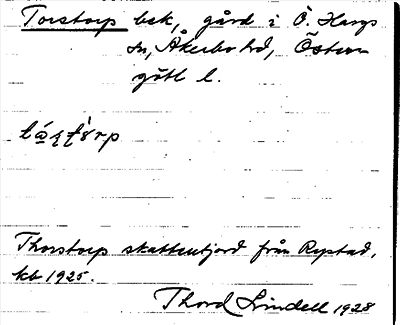 Torstorp bsk, gård i Ö. Hargs
sn, Åkerbo hd, Öster-
götl l.
Thorstorp skatteutjord från Rystad,
kb 1925.
Thord Lindell 1928